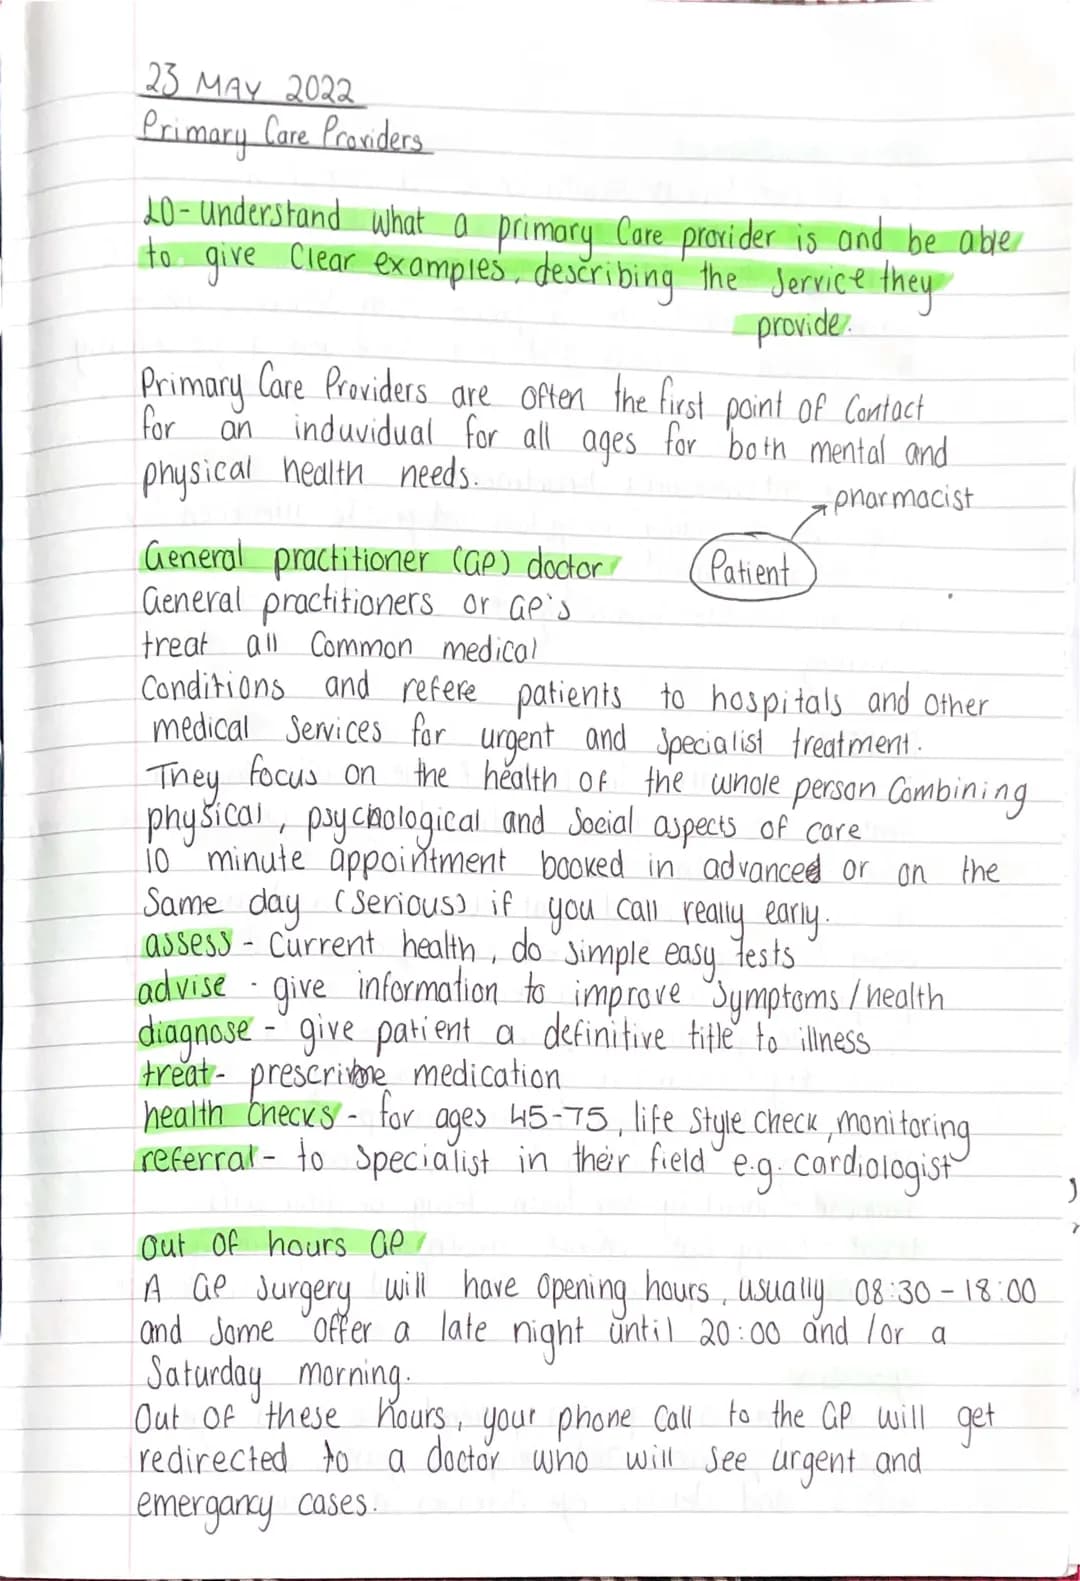 23 MAY 2022
Primary Care Providers
LO- understand what a primary Care provider is and be able
to give Clear examples, describing the Service they
provide.
Primary Care Providers are often the first point of Contact
for an induvidual for all ages for both mental and
physical health needs.
pharmacist
General practitioner (GP) doctor
Patient
General practitioners or GP's
treat all Common medical
Conditions and refere patients to hospitals and other
medical Services for urgent and Specialist treatment.
They focus on the health of the whole person Combining
physical, psychological and Social aspects of care
10 minute appointment booked in advanced or on the
Same day (Serious) if you call really early.
assess - Current health, do Simple easy tests
advise - give information to improve Symptoms / health
diagnose - give patient a definitive title to illness
treat - medication
health checks - for ages 45-75, life Style check, monitoring
referral - to Specialist in their field e.g. cardiologist
Out of hours GP
A GP Surgery will have Opening hours, usually 08:30 - 18:00
and Some offer a late night until 20:00 and / or a
Saturday morning.
Out of these hours, your phone Call to the GP will get
redirected to a doctor who will See urgent and
emergancy cases.